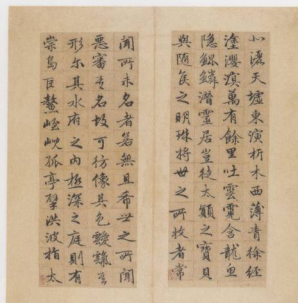 北灑天墟東演析木西薄青徐經
塗瀴溟萬有餘里吐雲霓含龍魚
隱鯤鱗潛靈居豈徒太顛之寶貝
與隨侯之明珠將世之所收者常
聞所未名者若無且希世之所聞
惡審其名故可彷像其色靉霼其
形尒其水府之內極深之庭則有
崇島巨鼇峌峴孤亭擘洪波指太